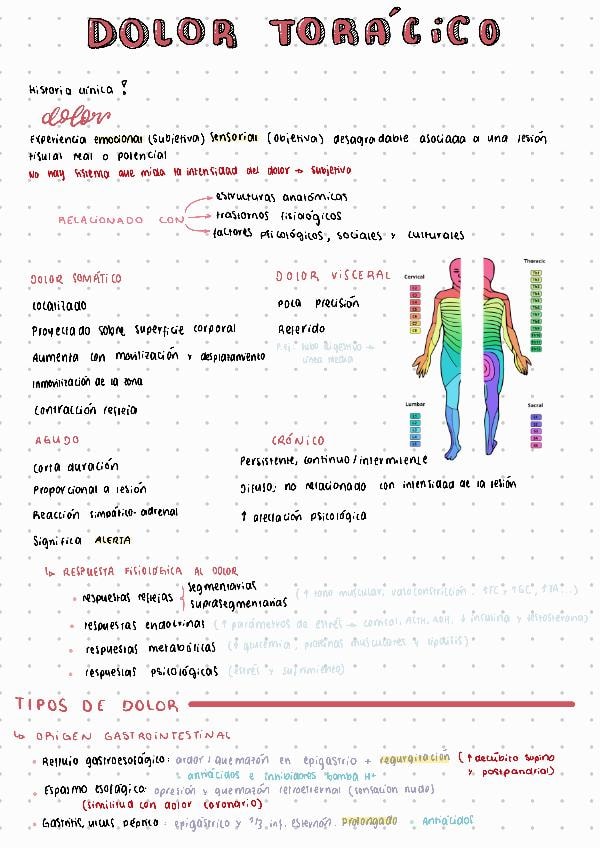 DOLOR TORÁCICO
Historia clínica !
dolor
Experiencia emocional (subjetiva) sensorial (objetiva) desagradable asociada a una lesión
tisular real o potencial
No hay sistema que mida la intensidad del dolor → subjetivo
RELACIONADO CON
estructuras anatómicas
trastornos fisiológicos
factores psicológicos, sociales y culturales
DOLOR SOMÁTICO
Localizado
Proyectado sobre superficie corporal
Aumenta con movilización y desplazamiento
Inmovilización de la zona
Contracción refleja
DOLOR VISCERAL
poca precisión
Referido
P.ej.: tubo digestivo →
línea media
Cervical
Thoracic
Lumbar
Sacral
AGUDO
Corta duración
Proporcional a lesión
Reacción simpático-adrenal
Significa ALERTA
CRÓNICO
Persistente, continuo/intermitente
Difuso; no relacionado con intensidad de la lesión
↑ afectación psicológica
↳ RESPUESTA FISIOLÓGICA AL DOLOR
• respuestas reflejas { segmentarias
suprasegmentarias
(↑ tono muscular, vasoconstricción, ↑FC, ↑GC, ↑TA...)
• respuestas endocrinas (↑ parámetros de estrés → cortisol, ACTH, ADH, ↓ insulina y testosterona)
• respuestas metabólicas (↑ glucemia, proteínas musculares y lipólisis)
• respuestas psicológicas (estrés y sufrimiento)
TIPOS DE DOLOR
↳ ORIGEN GASTROINTESTINAL
• Reflujo gastroesofágico: ardor/quemazón en epigastrio + regurgitación (↑ decúbito supino
y postpandrial)
: antiácidos e inhibidores bomba H+
• Espasmo esofágico: opresión y quemazón retroeternal (sensación nudo)
(similitud con dolor coronario)
• Gastritis, ulcus péptico: epigástrico y 1/3 inf. esternón. Prolongado : Antiácidos